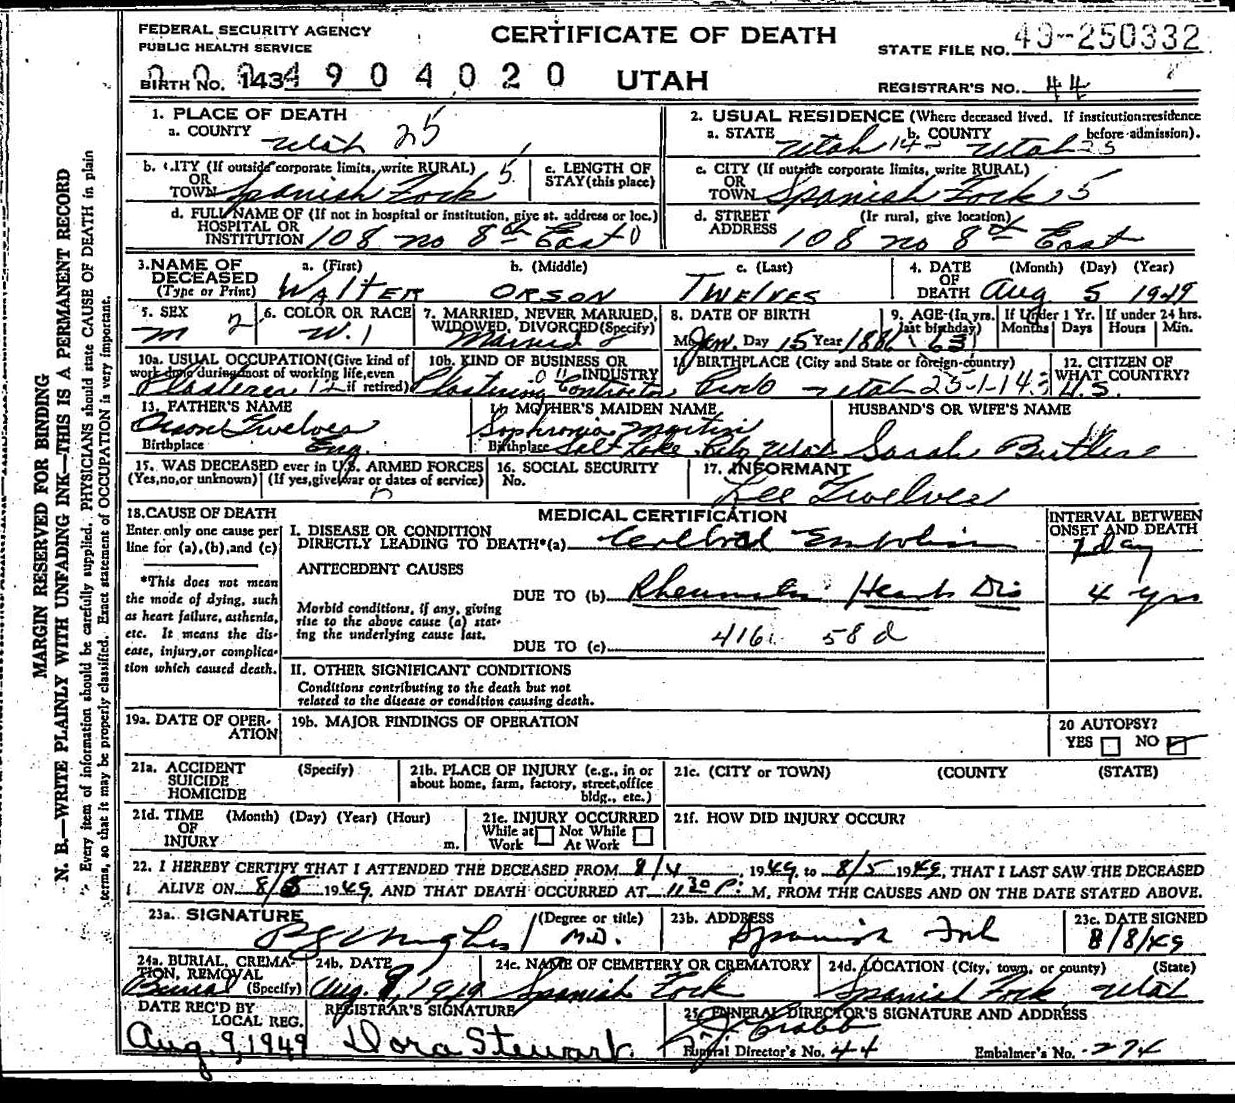 FEDERAL SECURITY AGENCY
PUBLIC HEALTH SERVICE
CERTIFICATE OF DEATH
STATE FILE NO. 49-250332
BIRTH NO. 143 4904020
UTAH
REGISTRAR'S NO. 44
1. PLACE OF DEATH
a. COUNTY
Utah 25
2. USUAL RESIDENCE (Where deceased lived. If institution:residence before admission).
a. STATE Utah 14 b. COUNTY Utah 25
b. CITY (If outside corporate limits, write RURAL)
OR
TOWN Spanish Fork 5
c. LENGTH OF
STAY (this place)
c. CITY (If outside corporate limits, write RURAL)
OR
TOWN Spanish Fork 5
d. FULL NAME OF (If not in hospital or institution, give st. address or loc.)
HOSPITAL OR
INSTITUTION 108 no 8th East 0
d. STREET (If rural, give location)
ADDRESS 108 no 8th East
3. NAME OF
DECEASED
(Type or Print)
a. (First) b. (Middle) c. (Last)
WALTER ORSON TWELVES
4. DATE (Month) (Day) (Year)
OF
DEATH Aug 5 1949
5. SEX
m 2
6. COLOR OR RACE
W. 1
7. MARRIED, NEVER MARRIED,
WIDOWED, DIVORCED (Specify)
Married 2
8. DATE OF BIRTH
M Jan. Day 15 Year 1886
9. AGE (In yrs. last bighday)
63
If Under 1 Yr.
Months Days
If under 24 hrs.
Hours Min.
10a. USUAL OCCUPATION (Give kind of
work done during most of working life, even
if retired)
Plasterer 12
10b. KIND OF BUSINESS OR
INDUSTRY
Plastering Contractor
11. BIRTHPLACE (City and State or foreign country)
Provo Utah 25-1-14
12. CITIZEN OF
WHAT COUNTRY?
U.S.
13. FATHER'S NAME
Orson Twelves
Birthplace Eng.
14. MOTHER'S MAIDEN NAME
Sophronia Martin
Birthplace Salt Lake City Utah
HUSBAND'S OR WIFE'S NAME
Sarah Butler
15. WAS DECEASED ever in U.S. ARMED FORCES
(Yes, no, or unknown) (If yes, give war or dates of service)
16. SOCIAL SECURITY
No.
17. INFORMANT
Lee Twelves
18. CAUSE OF DEATH
Enter only one cause per
line for (a), (b), and (c)
*This does not mean
the mode of dying, such
as heart failure, asthenia,
etc. It means the dis-
ease, injury, or complica-
tion which caused death.
MEDICAL CERTIFICATION
INTERVAL BETWEEN
ONSET AND DEATH
I. DISEASE OR CONDITION
DIRECTLY LEADING TO DEATH*(a) Cerebral Embolism 1 day
ANTECEDENT CAUSES
DUE TO (b) Rheumatic Heart Dis 4 yrs
Morbid conditions, if any, giving
rise to the above cause (a) stat-
ing the underlying cause last.
416 58 d
DUE TO (c)
II. OTHER SIGNIFICANT CONDITIONS
Conditions contributing to the death but not
related to the disease or condition causing death.
19a. DATE OF OPER-
ATION
19b. MAJOR FINDINGS OF OPERATION
20 AUTOPSY?
YES NO
21a. ACCIDENT (Specify)
SUICIDE
HOMICIDE
21b. PLACE OF INJURY (e.g., in or
about home, farm, factory, street, office
bldg., etc.)
21c. (CITY or TOWN) (COUNTY) (STATE)
21d. TIME (Month) (Day) (Year) (Hour)
OF
INJURY m.
21e. INJURY OCCURRED
While at Work Not While At Work
21f. HOW DID INJURY OCCUR?
22. I HEREBY CERTIFY THAT I ATTENDED THE DECEASED FROM 8/4, 1949, to 8/5 1949, THAT I LAST SAW THE DECEASED
ALIVE ON 8/5 1949 AND THAT DEATH OCCURRED AT 11:30 P. M, FROM THE CAUSES AND ON THE DATE STATED ABOVE.
23a. SIGNATURE (Degree or title)
M.D.
23b. ADDRESS
Spanish Fork
23c. DATE SIGNED
8/8/49
24a. BURIAL, CREMA-
TION, REMOVAL
(Specify)
Burial
24b. DATE
Aug. 9, 1949
24c. NAME OF CEMETERY OR CREMATORY
Spanish Fork
24d. LOCATION (City, town, or county) (State)
Spanish Fork, Utah
DATE REC'D BY
LOCAL REG.
Aug. 9, 1949
REGISTRAR'S SIGNATURE
Dora Stewart.
25. FUNERAL DIRECTOR'S SIGNATURE AND ADDRESS
Funeral Director's No. 44 Embalmer's No. 274
MARGIN RESERVED FOR BINDING
N. B.—WRITE PLAINLY WITH UNFADING INK—THIS IS A PERMANENT RECORD
Every item of information should be carefully supplied. PHYSICIANS should state CAUSE OF DEATH in plain
terms, so that it may be properly classified. Exact statement of OCCUPATION is very important.